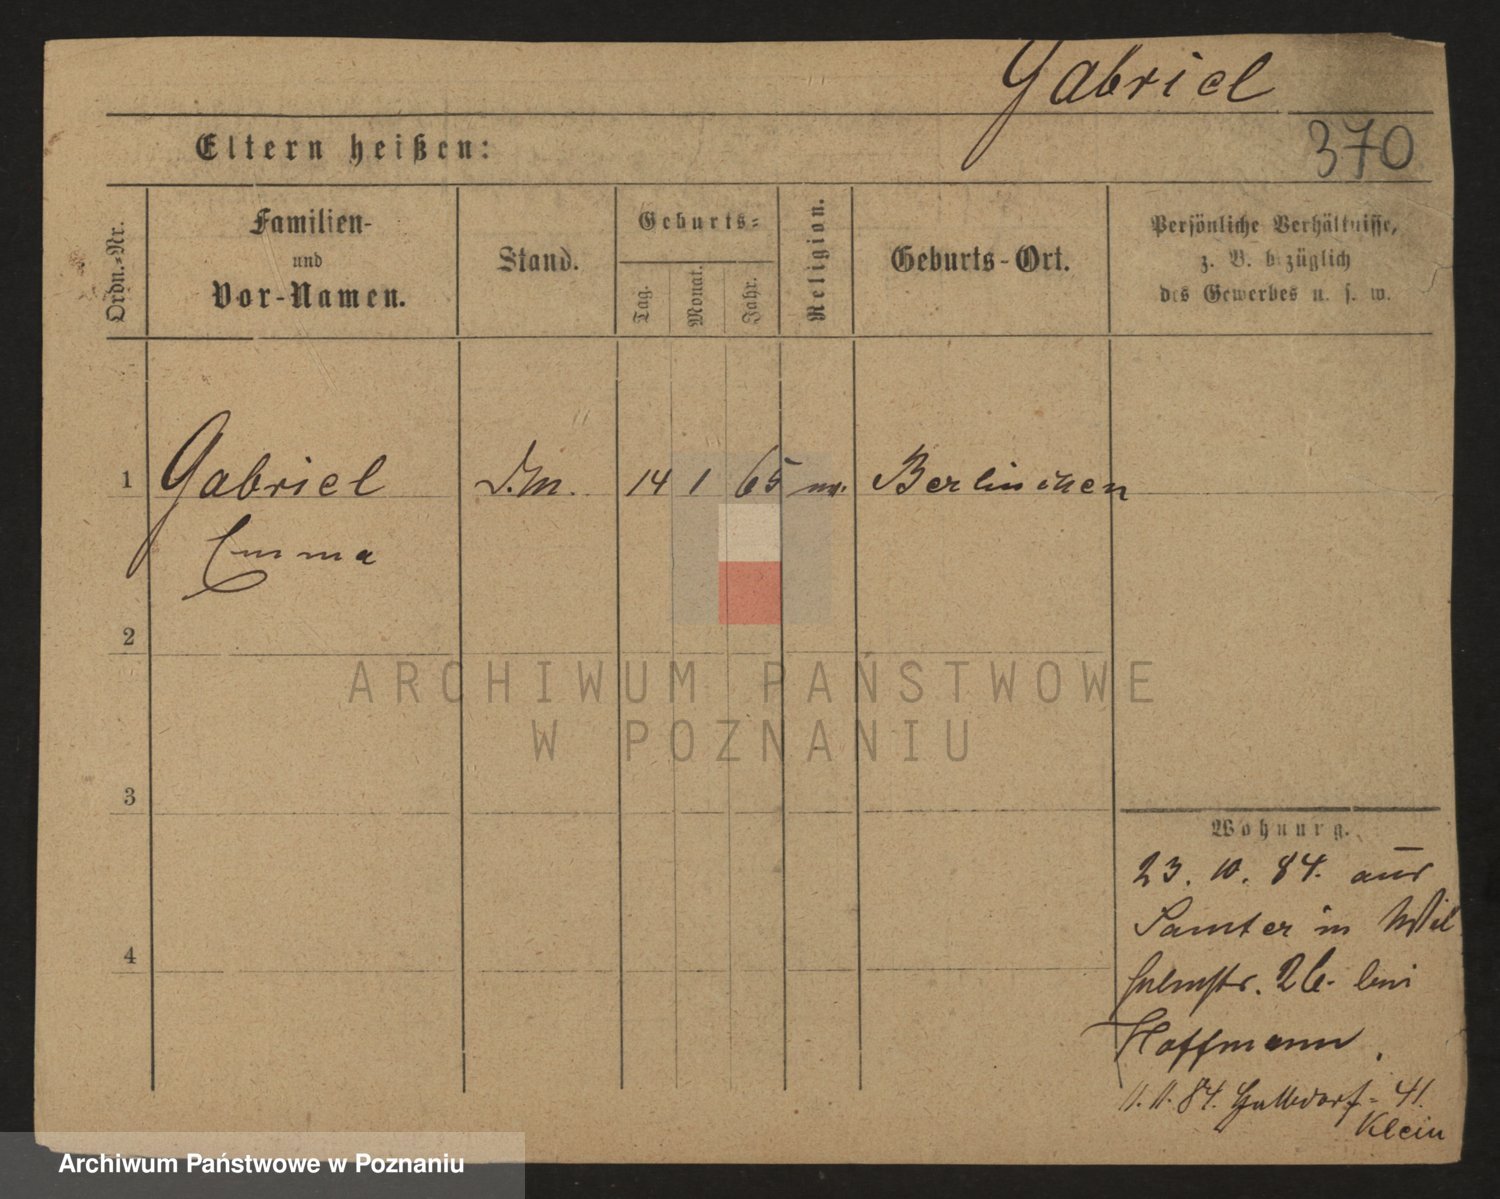 Gabriel
370
Eltern heißen:
Ordn.-Nr.
Familien-
und
Vor-Namen.
Stand.
Geburts-
Tag.
Monat.
Jahr.
Religion.
Geburts-Ort.
Persönliche Verhältnisse,
z. B. bezüglich
des Gewerbes u. s. w.
1 Gabriel 14 1 65 Berlinchen
Emma
2
ARCHIWUM PAŃSTWOWE
W POZNANIU
3
Wohnung.
23. 10. 84. aus
Samter in Wil
helmstr. 26. bei
4
Hoffmann.
11. 11. 84. 41.
Klein
Archiwum Państwowe w Poznaniu